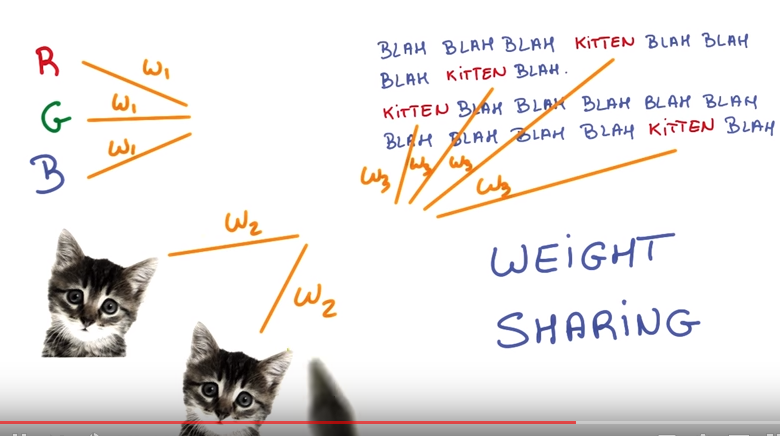 R
G
B
W1
W1
W1
BLAH BLAH BLAH KITTEN BLAH BLAH
BLAH KITTEN BLAH.
KITTEN BLAH BLAH BLAH BLAH BLAH
BLAH BLAH BLAH BLAH KITTEN BLAH
W3
W3
W3
W3
W2
W2
WEIGHT
SHARING